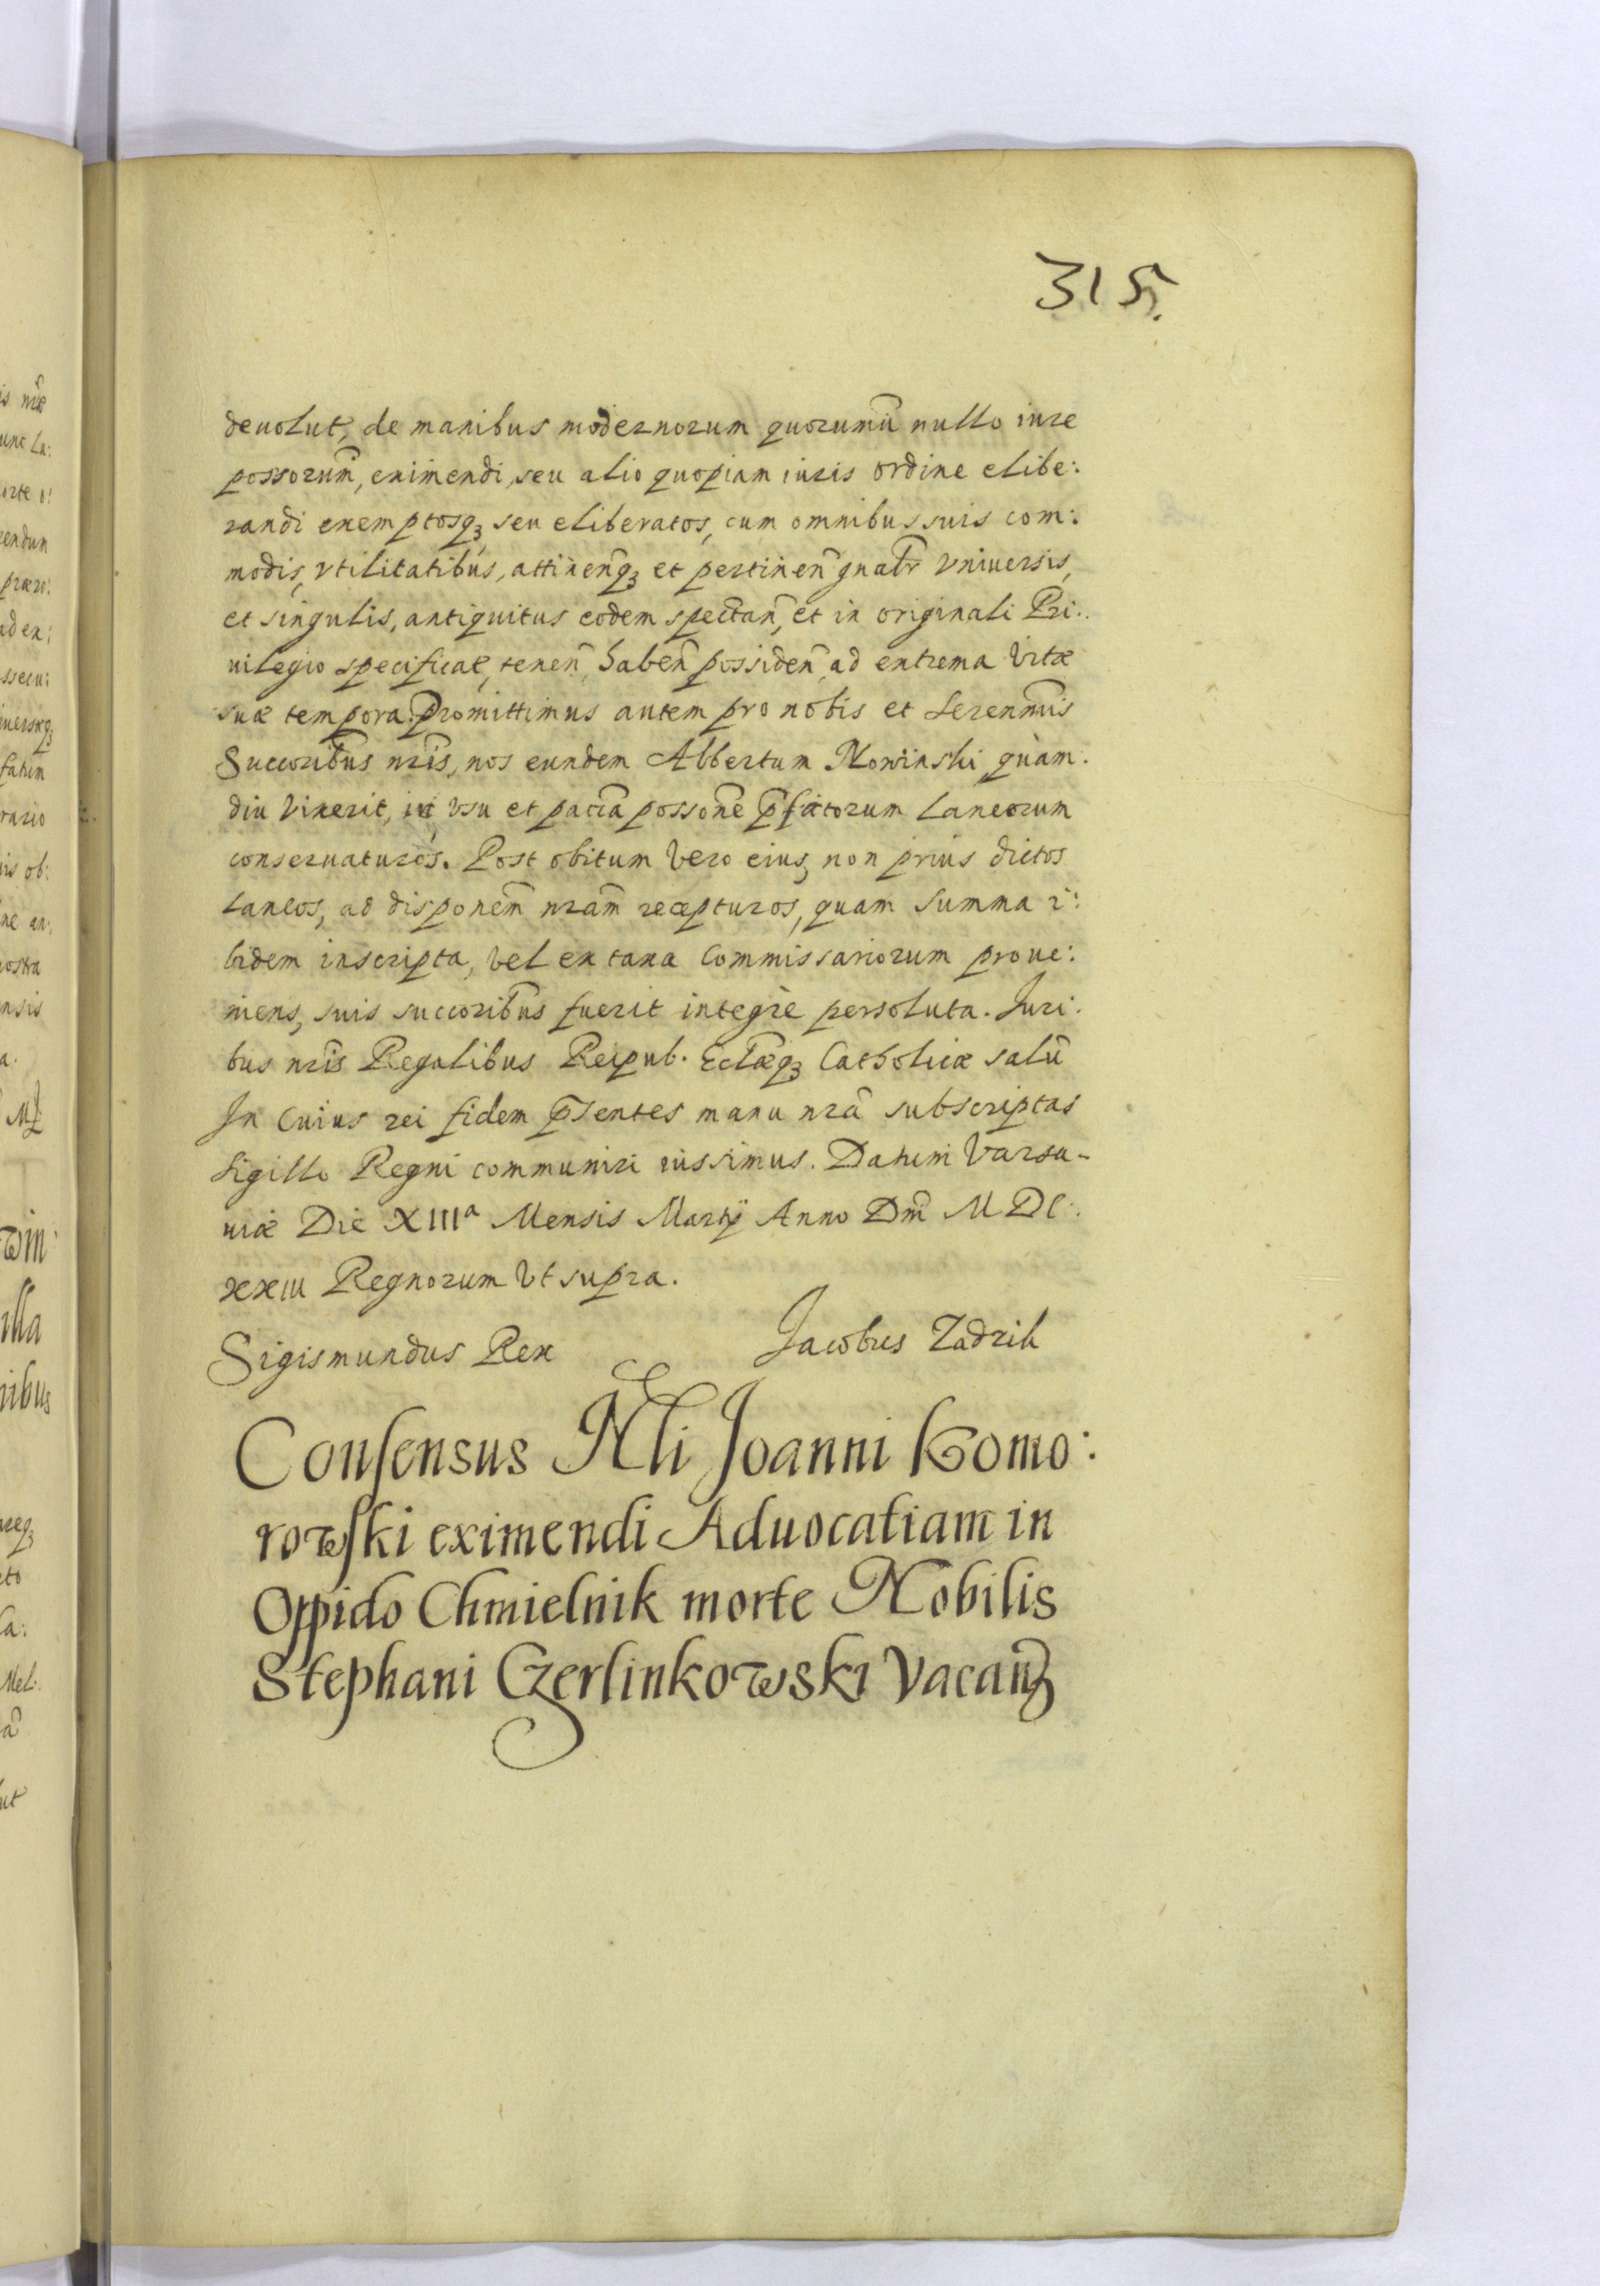 315.
deuolut, de manibus modernorum quorumũ nullo iure
possorum̃, eximendi, seu alio quopiam iuris ordine elibe:
randi exemptosqȝ seu eliberatos, cum omnibus suis com:
modis, vtilitatibus, attinen̄qȝ et pertinen̄ gnalr̃ vniuersis,
et singulis, antiquitus eodem spectan̄, et in originali Pri:
uilegio specificat, tenen̄, haben̄ possiden̄ ad extrema vitæ
suæ tempora. Promittimus autem pro nobis et Serenmis̃
Succoribus̃ nris̃, nos eundem Albertum Nowinski quam:
diu vixerit, in vsu et pacta possone p̃fatorum Laneorum
conseruaturos. Post obitum vero eius, non prius dictos
Laneos, ad disponem̃ nram̃ recepturos, quam summa i:
bidem inscripta, vel ex taxa Commissariorum proue:
niens, suis succoribus̃ fuerit integre persoluta. Juri:
bus nris̃ Regalibus Reipub. Eclæ̃qȝ Catholicæ saluis̃
In Cuius rei fidem p̃sentes manu nrã subscriptas
Sigillo Regni communiri iussimus. Datum Varsa-
uiæ Die XIIIª Mensis Martij Anno Dm̃ MDC:
xxiii Regnorum Vt supra.
Sigismundus Rex Jacobus Zadzik
Consensus Nl̃i Joanni Komo:
rowski eximendi Aduocatiam in
Oppido Chmielnik morte Nobilis
Stephani Czerlinkowski Vacan̄